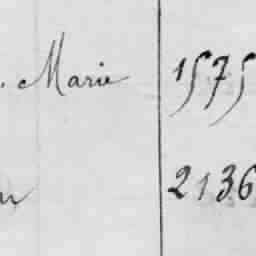 . Marie 1575
2136